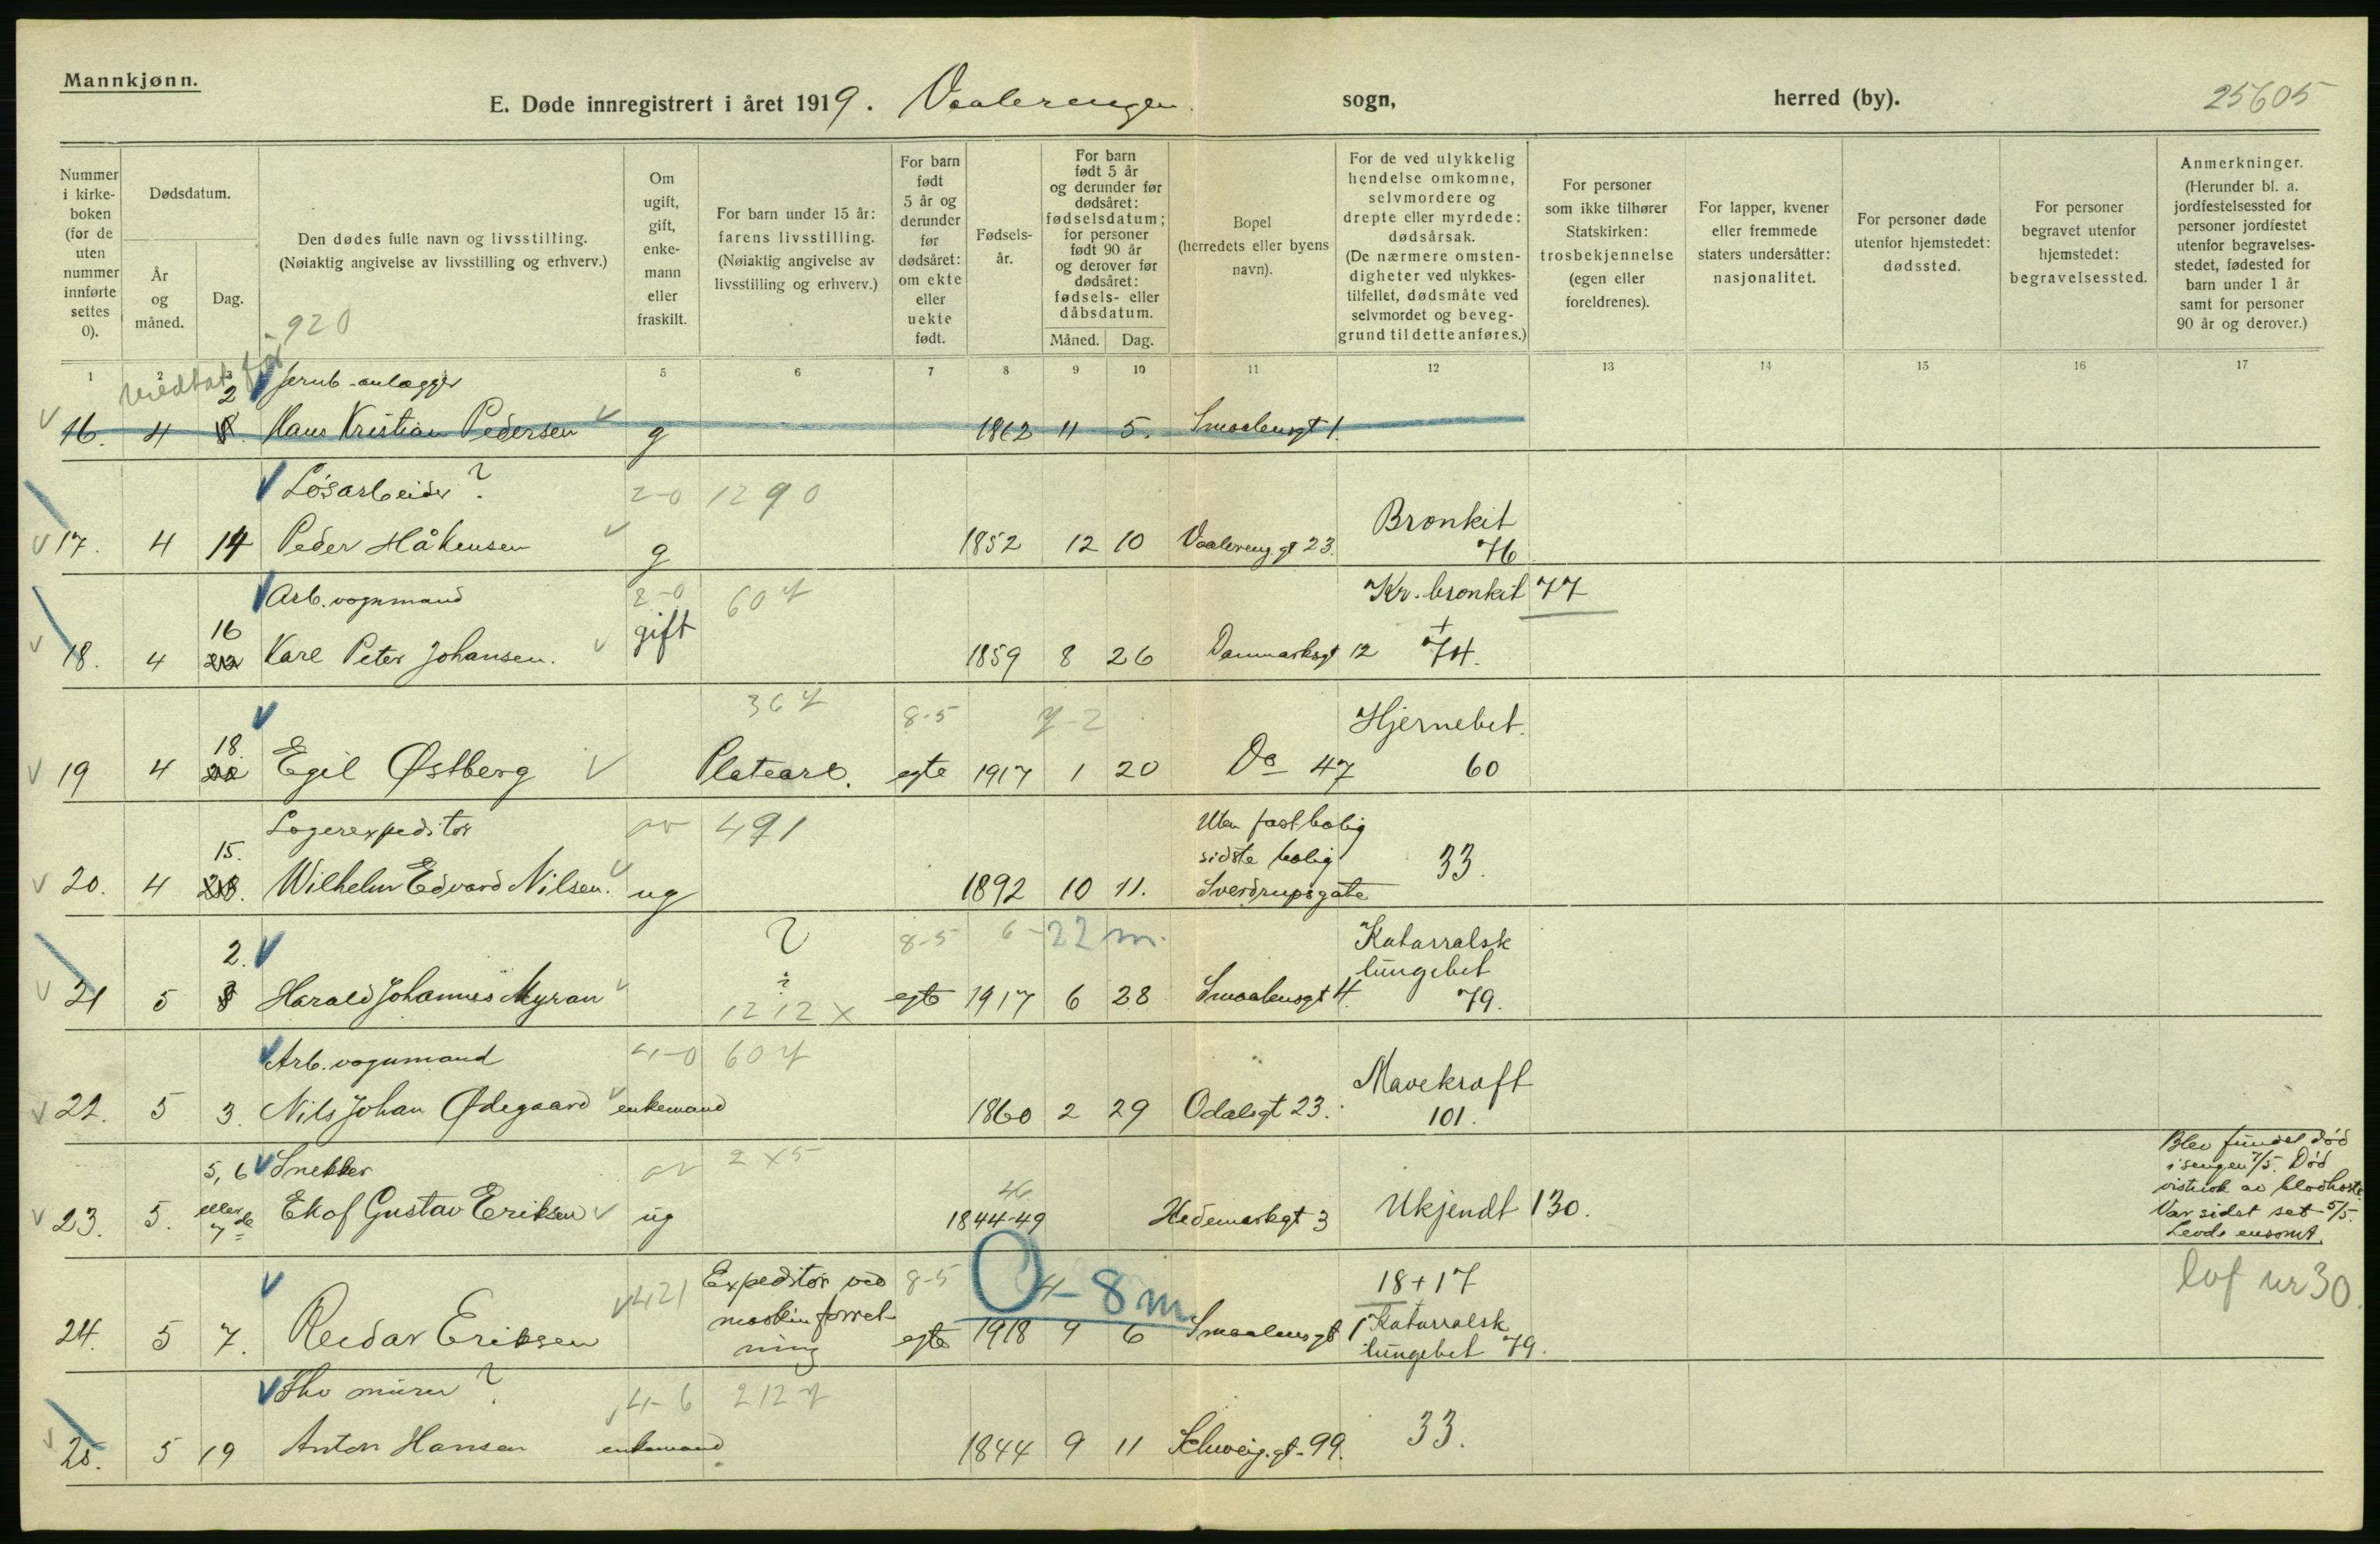 Mannkjønn.
E. Døde innregistrert i året 1919. Vaalerengen sogn, herred (by). 25605
Nummer i kirkeboken (for de uten nummer innførte settes 0).
Dødsdatum.
År og måned.
Dag.
Den dødes fulle navn og livsstilling.
(Nøiaktig angivelse av livsstilling og erhverv.)
Om ugift, gift, enkemann eller fraskilt.
For barn under 15 år: farens livsstilling.
(Nøiaktig angivelse av livsstilling og erhverv.)
For barn født 5 år og derunder før dødsåret: om ekte eller uekte født.
Fødselsår.
For barn født 5 år og derunder før dødsåret: fødselsdatum; for personer født 90 år og derover før dødsåret: fødsels- eller dåbsdatum.
Måned. Dag.
Bopel (herredets eller byens navn).
For de ved ulykkelig hendelse omkomne, selvmordere og drepte eller myrdede: dødsårsak.
(De nærmere omstendigheter ved ulykkestilfellet, dødsmåte ved selvmordet og beveggrund til dette anføres.)
For personer som ikke tilhører Statskirken: trosbekjennelse (egen eller foreldrenes).
For lapper, kvener eller fremmede staters undersåtter: nasjonalitet.
For personer døde utenfor hjemstedet: dødssted.
For personer begravet utenfor hjemstedet: begravelsessted.
Anmerkninger.
(Herunder bl. a. jordfestelsessted for personer jordfestet utenfor begravelsesstedet, fødested for barn under 1 år samt for personer 90 år og derover.)
920
1 2 3 5 6 7 8 9 10 11 12 13 14 15 16 17
Jernb-anlægger
16. 4 2 Hans Kristian Pedersen g 1862 11 5. Smaalensgt 1.
Løsarbeider ? 2-0 1290 Bronkit
17. 4 14 Peder Håkensen g 1852 12 10 Vaalereng.gt 23. 76
Arb. vognmand 2-0 607 Kr. bronkit 77
16 gift +
18. 4 Karl Peter Johansen. 1859 8 26 Danmarksgt 12 74.
367 8-5 7-2 Hjernebet.
18.
19 4 Egil Østberg Platearb. egte 1917 1 20 Do 47 60
Lagerexpeditør 491 Uten fast bolig
15. sidste bolig 33.
20. 4 Wilhelm Edvard Nilsen. ug 1892 10 11. Sverdrupsgate
? 8-5 6-22 m. Katarralsk
2. ? lungebet
21 5 Harald Johannes Myran 1212 x egte 1917 6 28 Smaalensgt 4. 79.
Arb. vognmand 4-0 607 Mavekræft
22. 5 3. Nils Johan Ødegaard enkemand 1860 2 29 Odalsgt 23. 101.
5, 6 Snekker 2x5 46 Blev fundet død
eller i sengen 7/5. Død
7de vistnok av blodhoste.
23. 5. Ekof Gustav Eriksen ug 1844-49 Hedemarkgt 3 Ukjendt 130. Var sidst set 5/5.
Levde ensomt.
421 Expeditør ved 8-5 0 4-8 m. 18+17 lof nr 30.
maskinforret-
24. 5 7. Reidar Eriksen ning egte 1918 9 6 Smaalensgt 1 Katarralsk
lungebet 79.
Fhv murer ? 4-6 2127
25. 5 19 Anton Hansen enkemand 1844 9 11 Schweig.gt-99. 33.